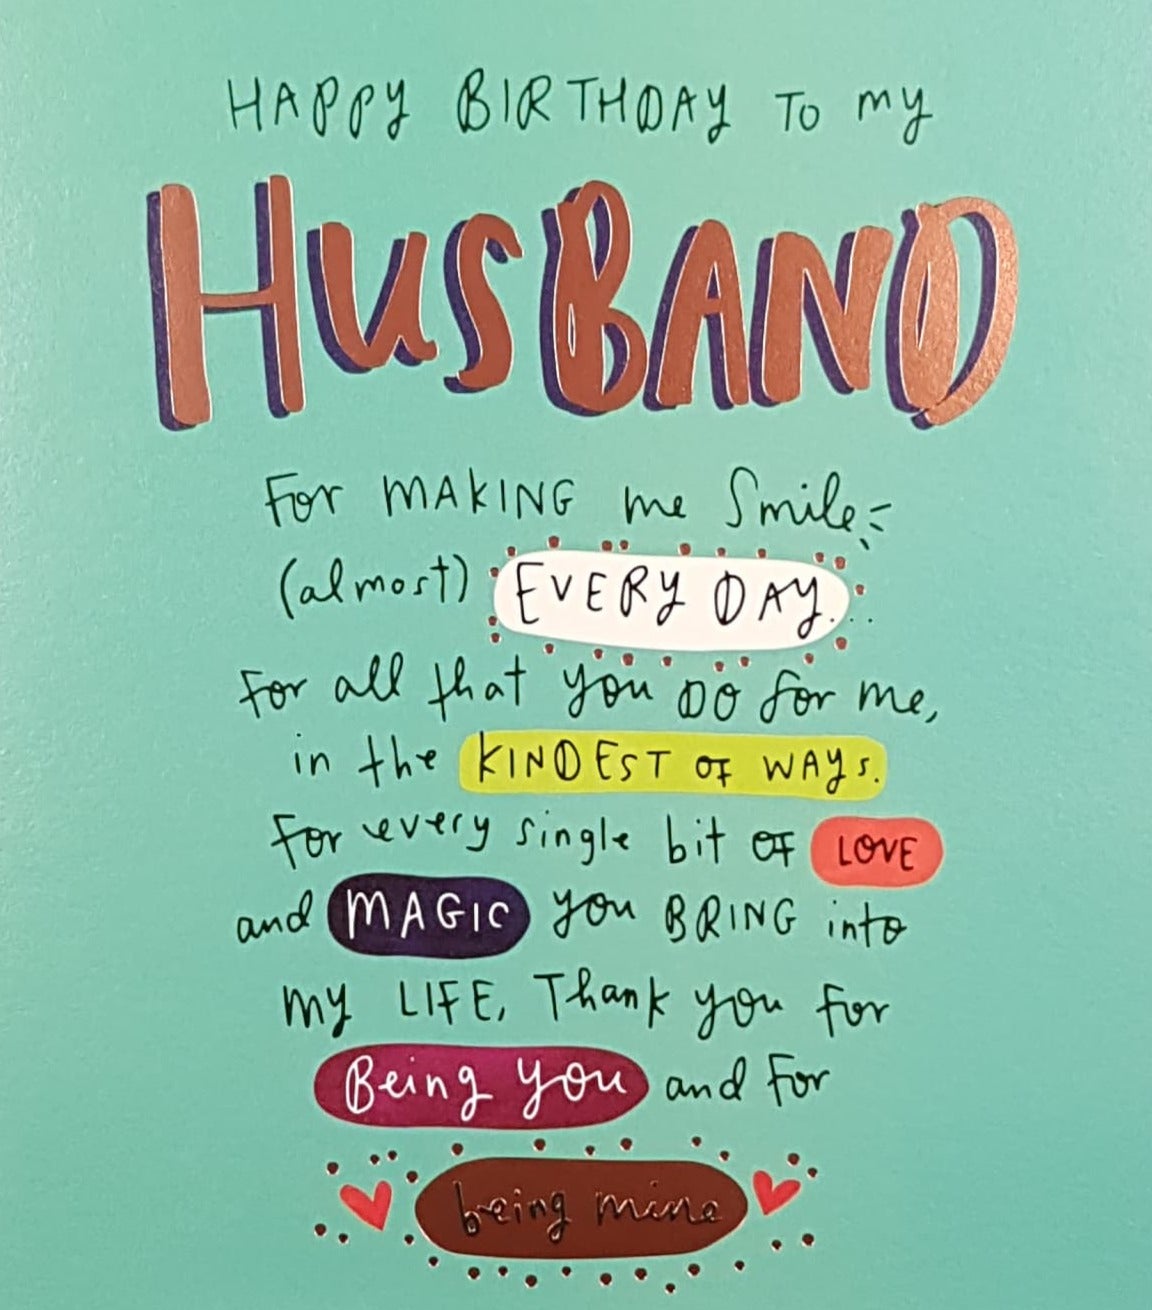 HAPPY BIRTHDAY TO my
HUSBAND
For MAKING me Smile
(almost) EVERY DAY...
For all that you DO for me,
in the KINDEST OF WAYS.
For every single bit OF LOVE
and MAGIC you BRING into
my LIFE, Thank you for
Being you and For
being mine